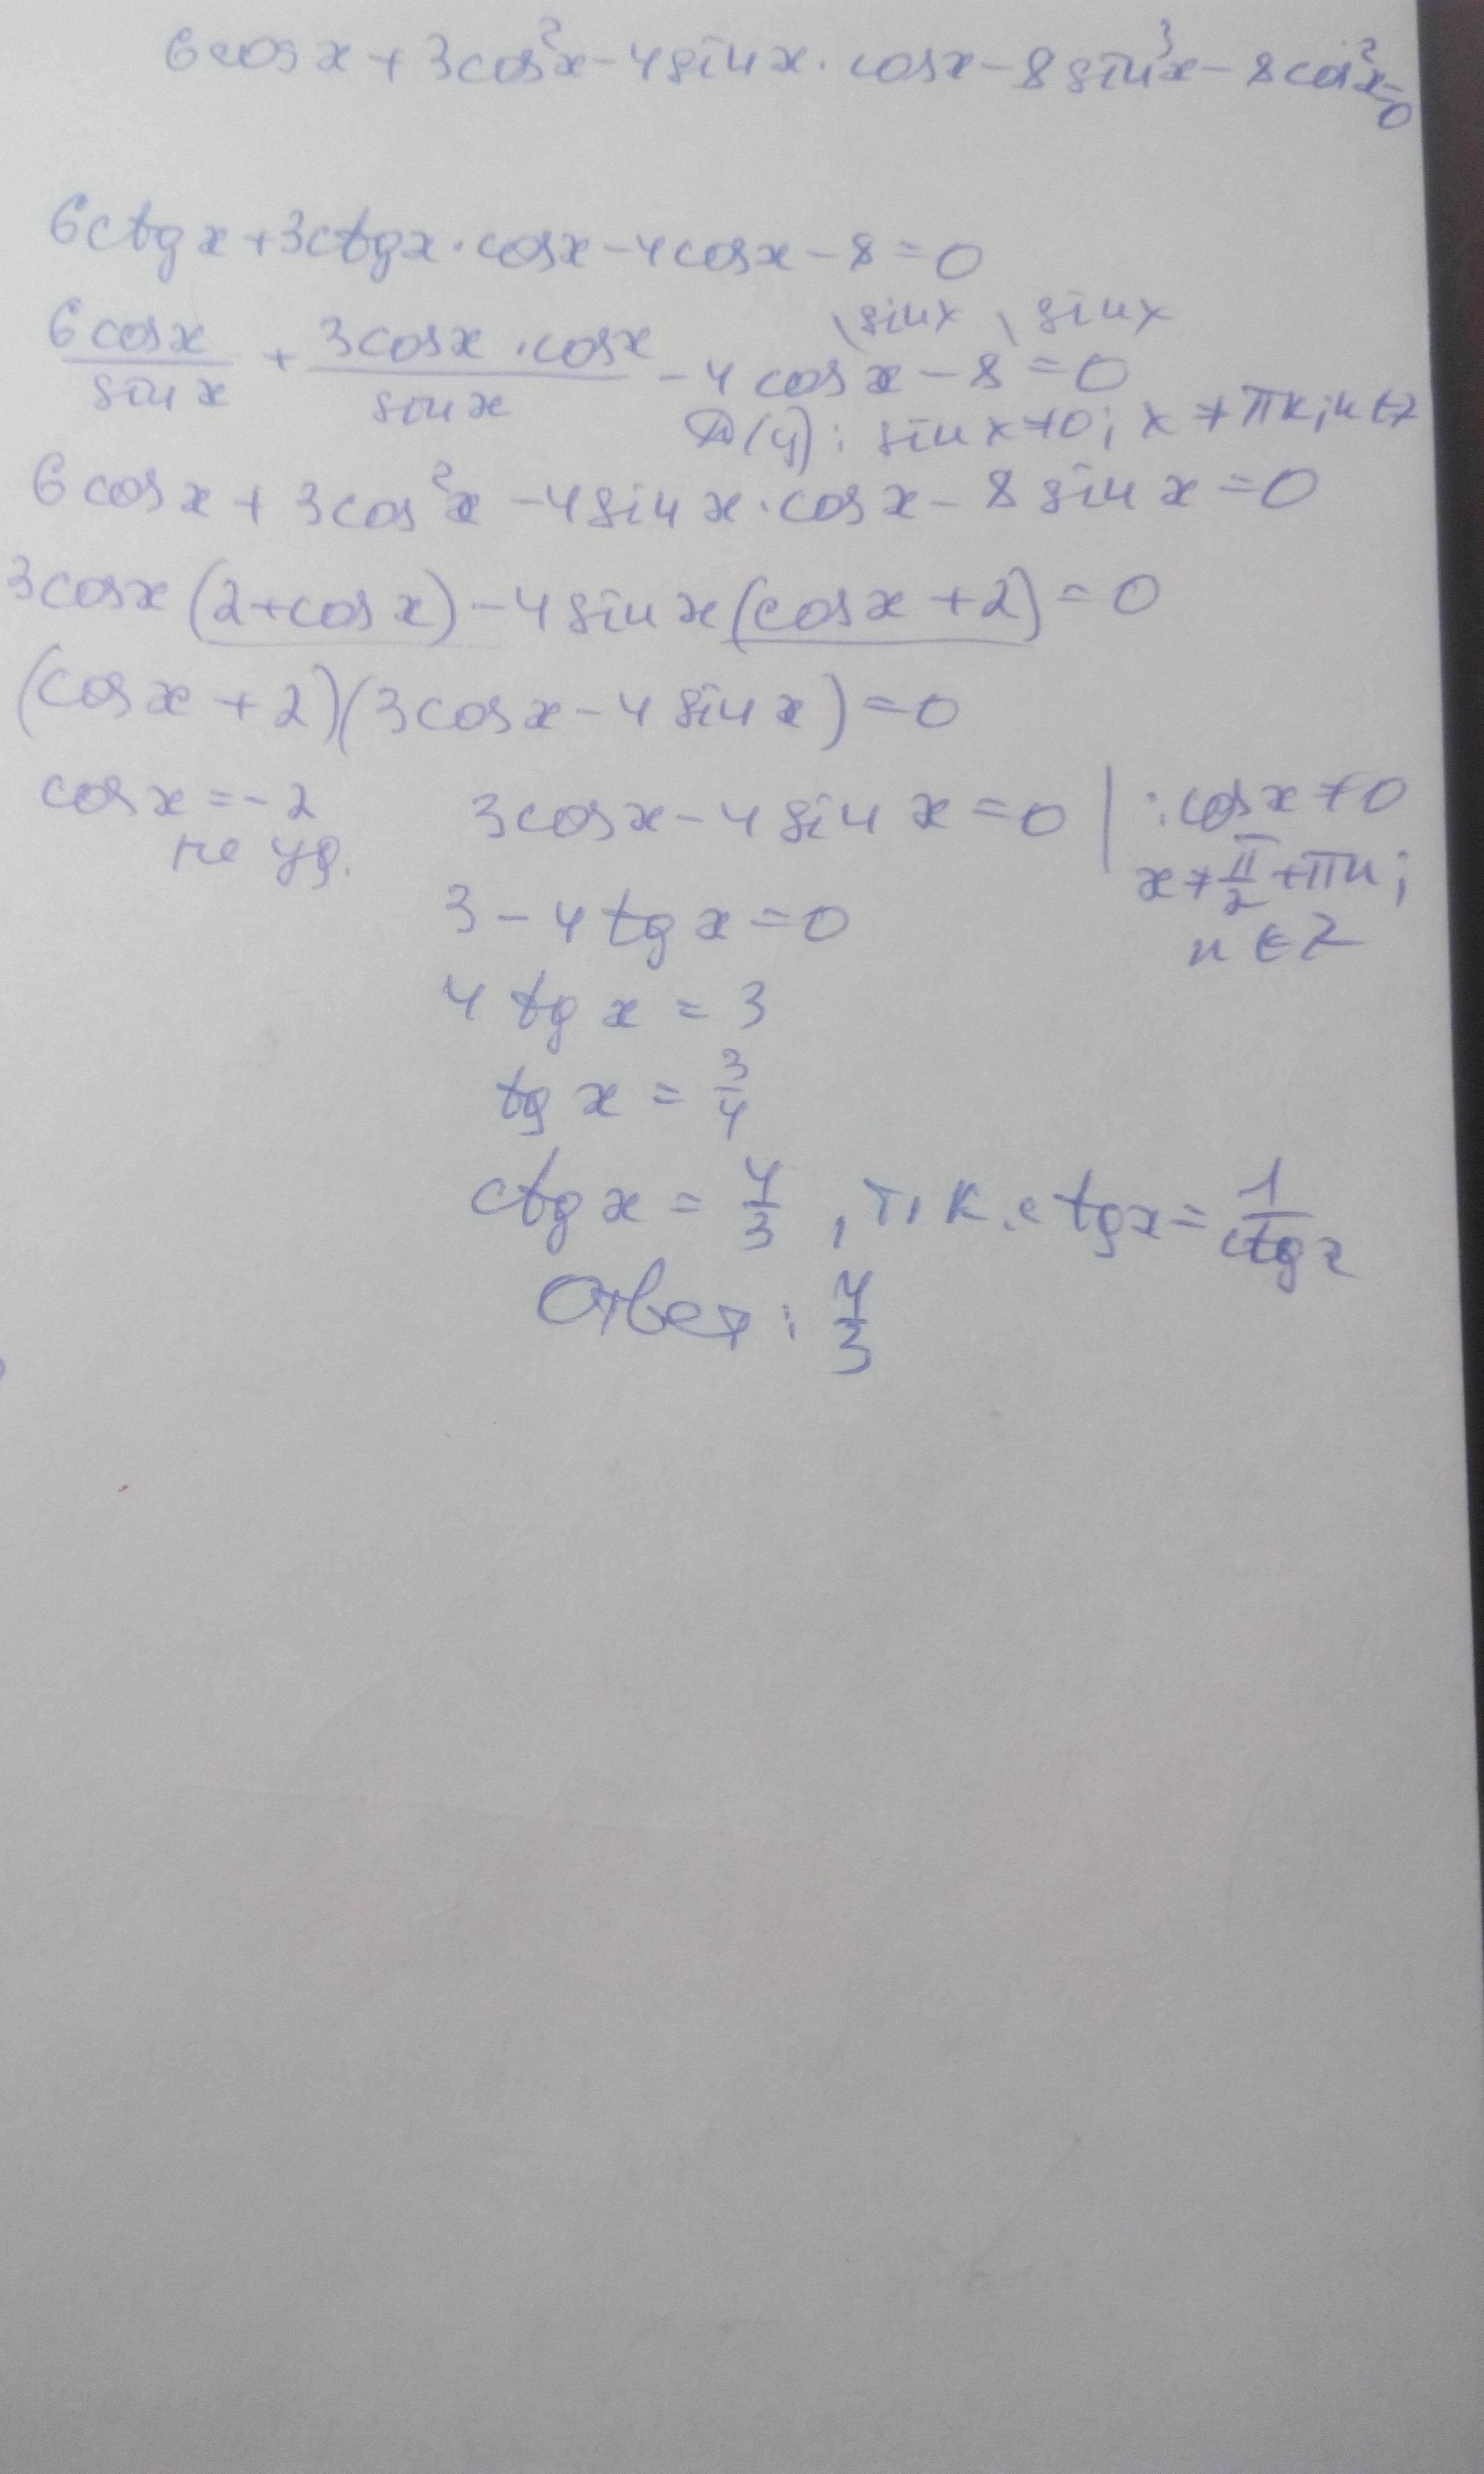 6cosx+3cos²x-4sinx·cosx-8sin³x-8cos²x=0
6ctgx+3ctgx·cosx-4cosx-8=0
\sinx \sinx
6cosx/sinx + 3cosx·cosx/sinx -4cosx-8=0
D(y): sinx≠0; x≠πk, k∈Z
6cosx+3cos²x-4sinx·cosx-8sinx=0
3cosx(2+cosx)-4sinx(cosx+2)=0
(cosx+2)(3cosx-4sinx)=0
cosx=-2 3cosx-4sinx=0 | :cosx≠0
не уд. x≠π/2+πn;
3-4tgx=0 n∈Z
4tgx=3
tgx=3/4
ctgx=4/3, т.к. tgx=1/ctgx
Ответ: 4/3